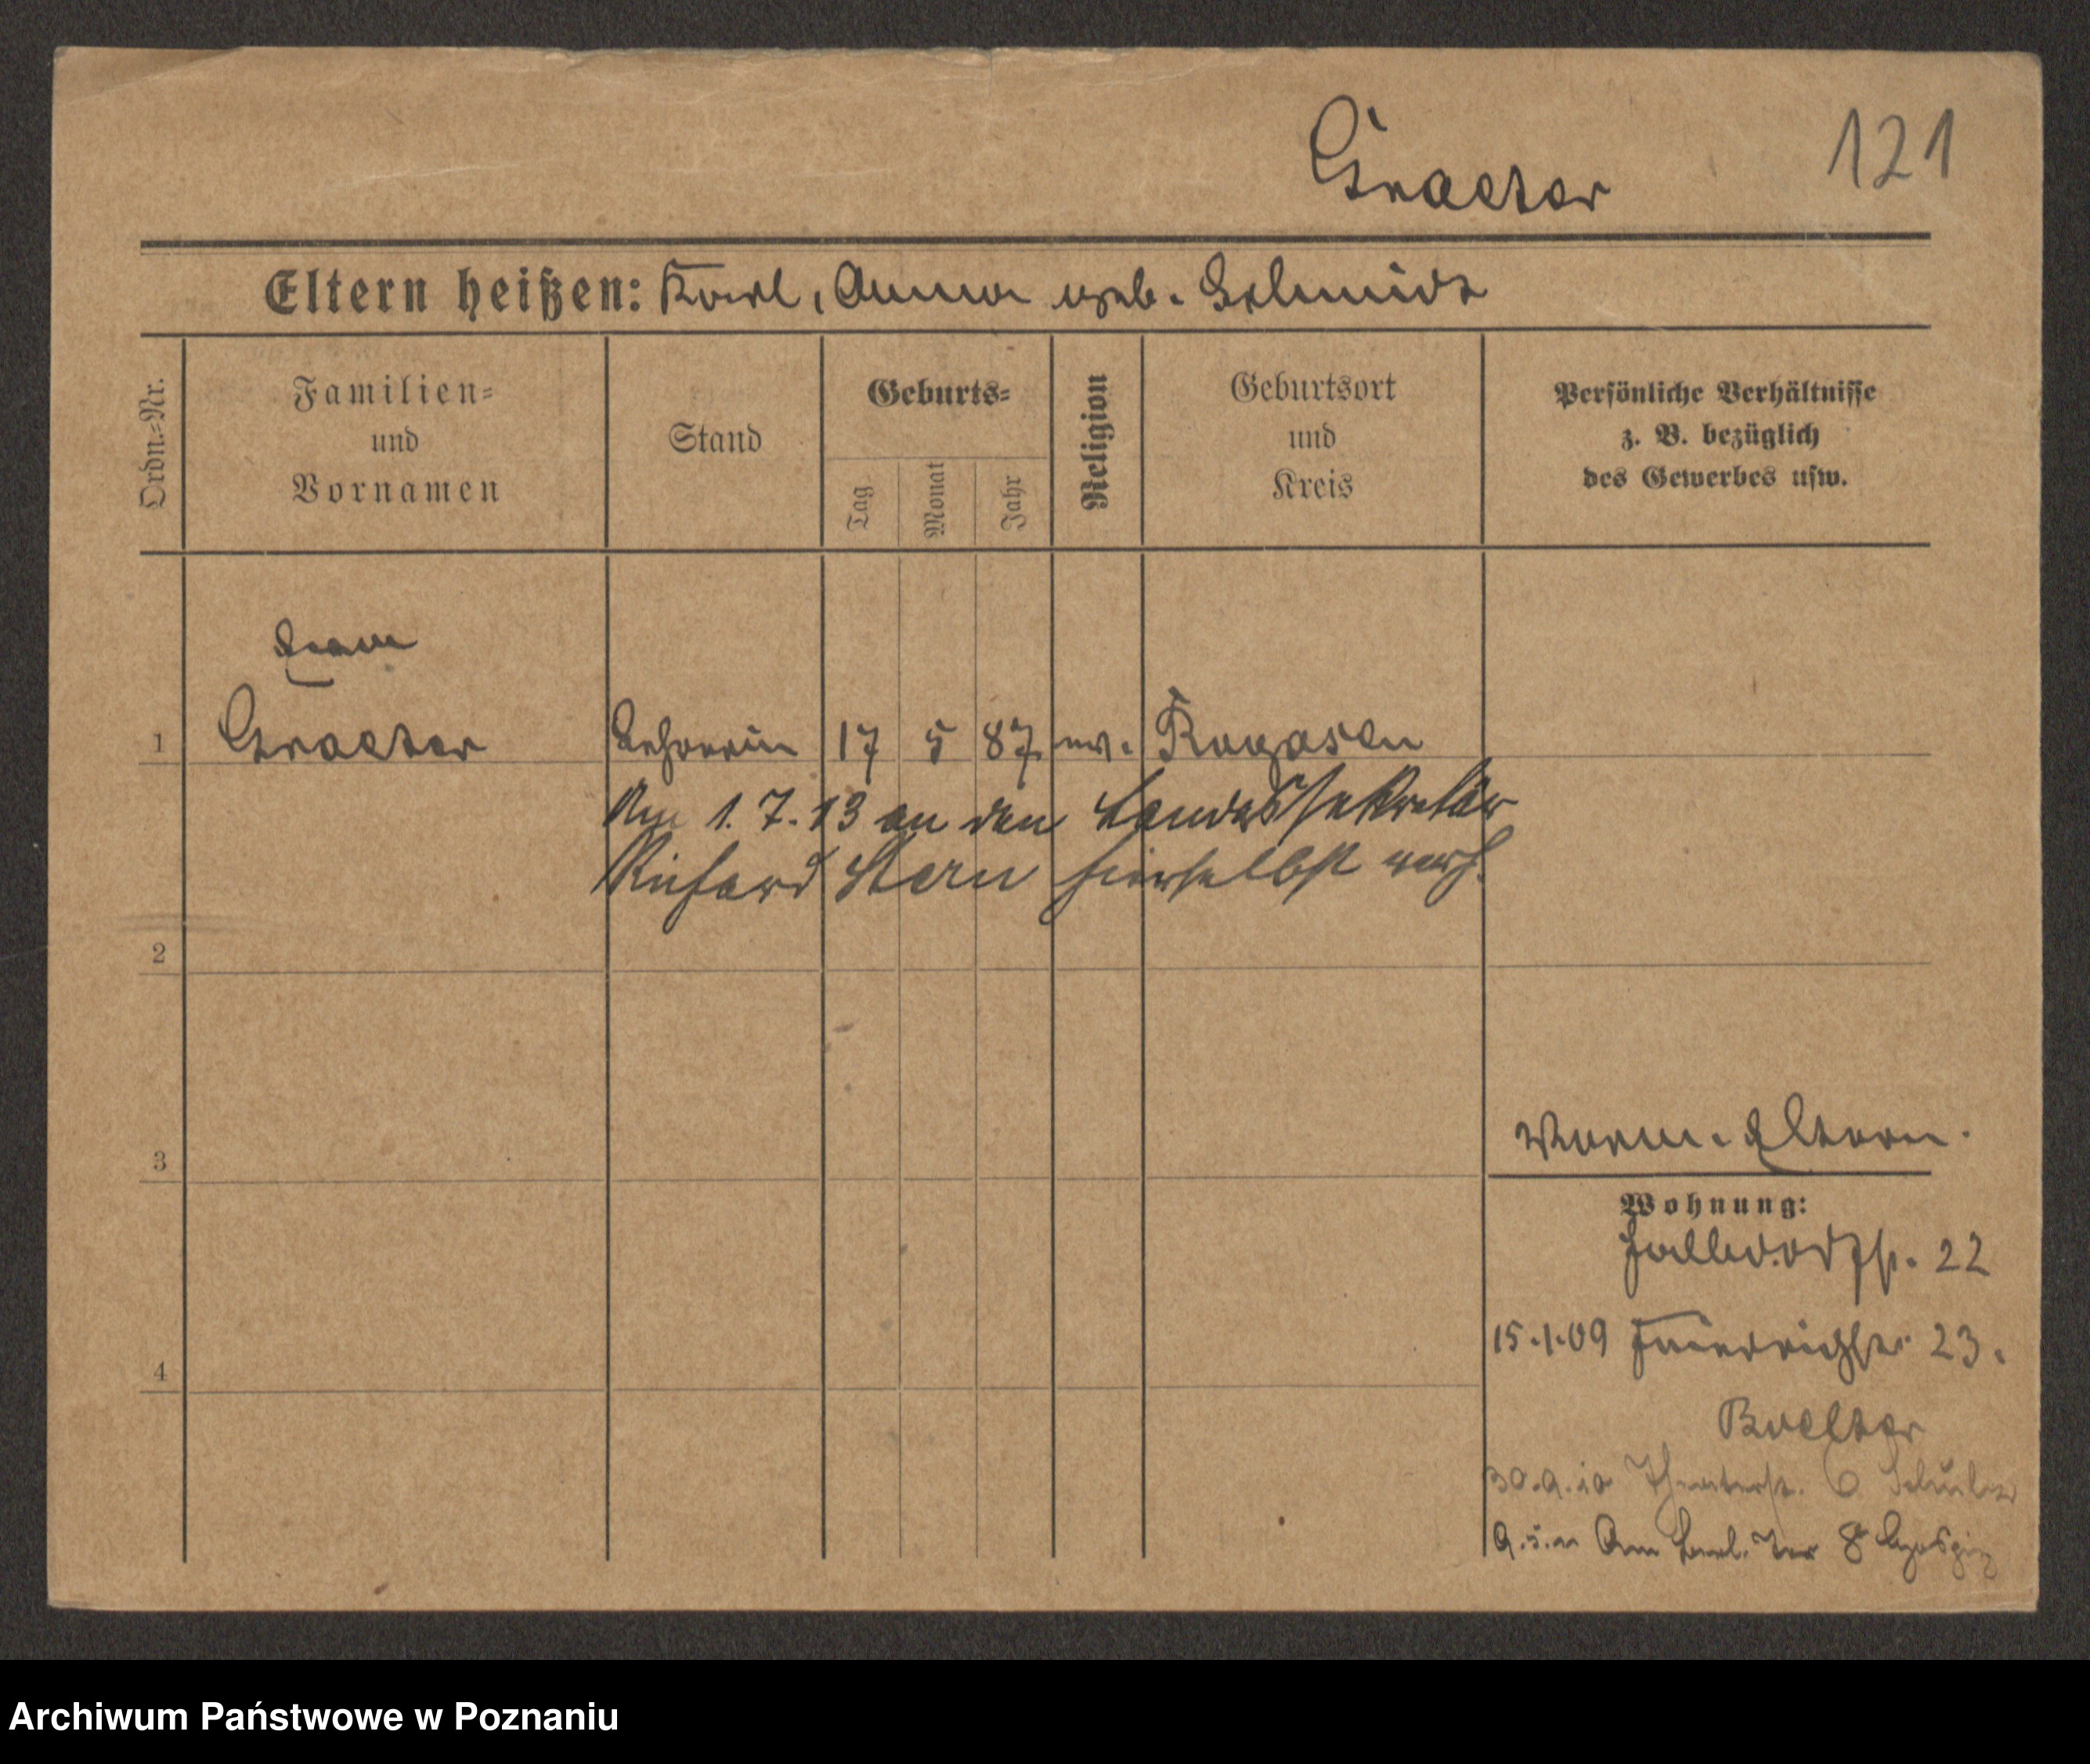 Graeter 121
Eltern heißen: Karl, Anna geb. Schmidt
Ordn.-Nr.
Familien-
und
Vornamen
Stand
Geburts-
Tag
Monat
Jahr
Religion
Geburtsort
und
Kreis
Persönliche Verhältnisse
z. B. bezüglich
des Gewerbes usw.
1 Graeter Lehrerin 17 5 87 ev. Rogasen
Am 1. 7. 13 an den Landessekretär
Richard Stern hierselbst verh.
2
3
Vorm. Eltern.
Wohnung:
Halbdorfstr. 22
15.1.09 Friedrichstr. 23.
4
30.9.10 Theaterstr. 6 Schulz
Am Berl. Tor 8
Archiwum Państwowe w Poznaniu